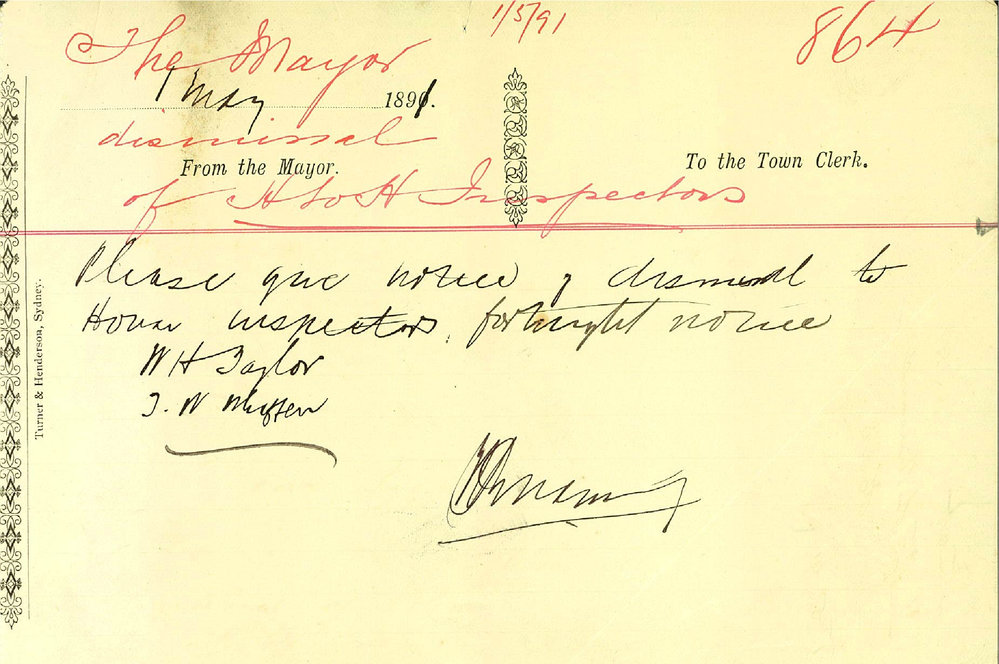 1/5/91
864
The Mayor
1 May 1891.
dismissal
From the Mayor.
To the Town Clerk.
of H to H Inspectors
Please give notice of dismissal to
House inspectors, fortnight notice
W H Taylor
J. W
Turner & Henderson, Sydney.